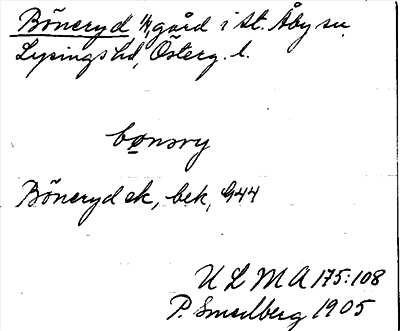 Böneryd, 1/1, gård i St. Åby sn,
Lysings hd, Österg. l.
bonəry
Böneryd ek, bek, G44
U L M A 175:108
P. Smedberg 1905